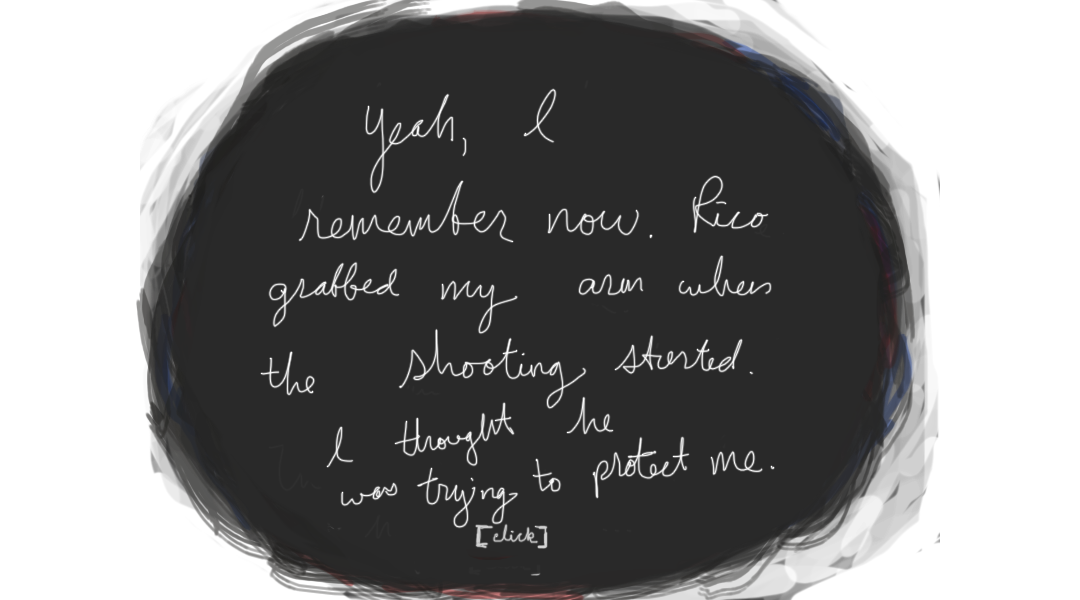 Yeah, I
remember now. Rico
grabbed my arm when
the shooting started.
I thought he
was trying to protect me.
[click]